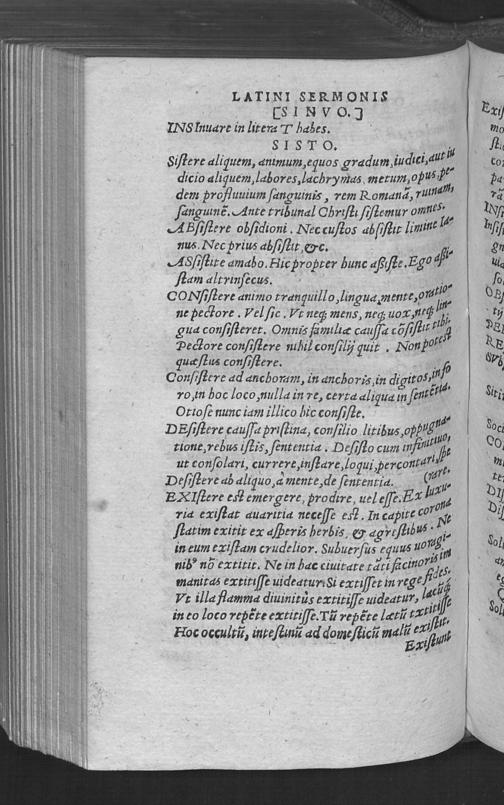 LATINI SERMONIS
[SINVO.]
INSInuare in litera T habes.
SISTO.
Sistere aliquem, animum, equos gradum, iudici, aut iu
dicio aliquem, labores, lachrymas, metum, opus, pe-
dem profluuium sanguinis, rem Romanā, ruinam,
sanguinē. Ante tribunal Christi sistemur omnes.
ABsistere obsidioni. Nec custos absistit limine Ia-
nus. Nec prius absistit, &c.
ASsistite amabo. Hic propter hunc assiste. Ego assi-
stam altrinsecus.
CONsistere animo tranquillo, lingua, mente, oratio-
ne pectore. Vel sic. Vt neq; mens, neq; uox, neq; lin-
gua consisteret. Omnis familiæ caussa cōsistit tibi.
Pectore consistere nihil consilij quit. Non potest
quæstus consistere.
Consistere ad anchoram, in anchoris, in digitos, in fo
ro, in hoc loco, nulla in re, certa aliqua in sentētia.
Otiose nunc iam illico hic consiste.
DEsistere caussa pristina, consilio litibus, oppugna-
tione, rebus istis, sententia. Desisto cum infinitiuo,
ut consolari, currere, instare, loqui, percontari, spe
Desistere ab aliquo, à mente, de sententia. (rare.
EXIstere est emergere, prodire, uel esse. Ex luxu-
ria existat auaritia necesse est. In capite corona
statim exitit ex asperis herbis, & agrestibus. Ne
in eum existam crudelior. Subuersus equus uoragi-
nibꝰ nō extitit. Ne in hac ciuitate tāti facinoris im
manitas extitisse uideatur. Si extisset in rege fides.
Vt illa flamma diuinitùs extitisse uideatur, lacūq;
in eo loco repēte extitisse. Tū repēte lætū txtitisse
Hoc occultū, intestinū ad domesticū malū existit.
Existunt